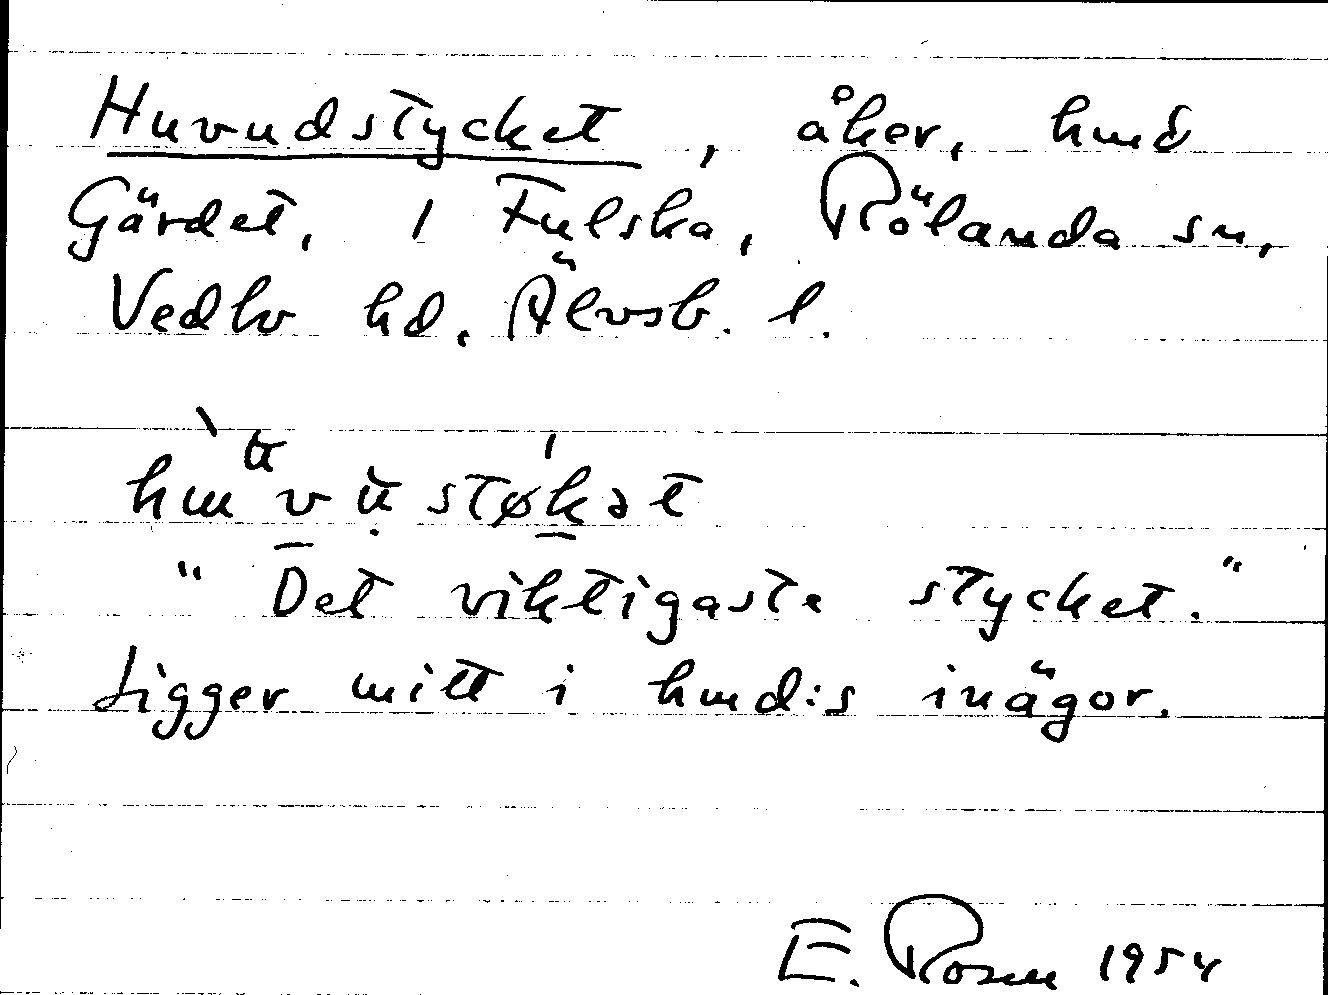 Huvudstycket, åker, hmd
Gärdet, 1 Fulska, Rölanda sn,
Vedbo hd, Älvsb. l.
"Det viktigaste stycket."
Ligger mitt i hmd:s inägor.
E. Rosen 1954